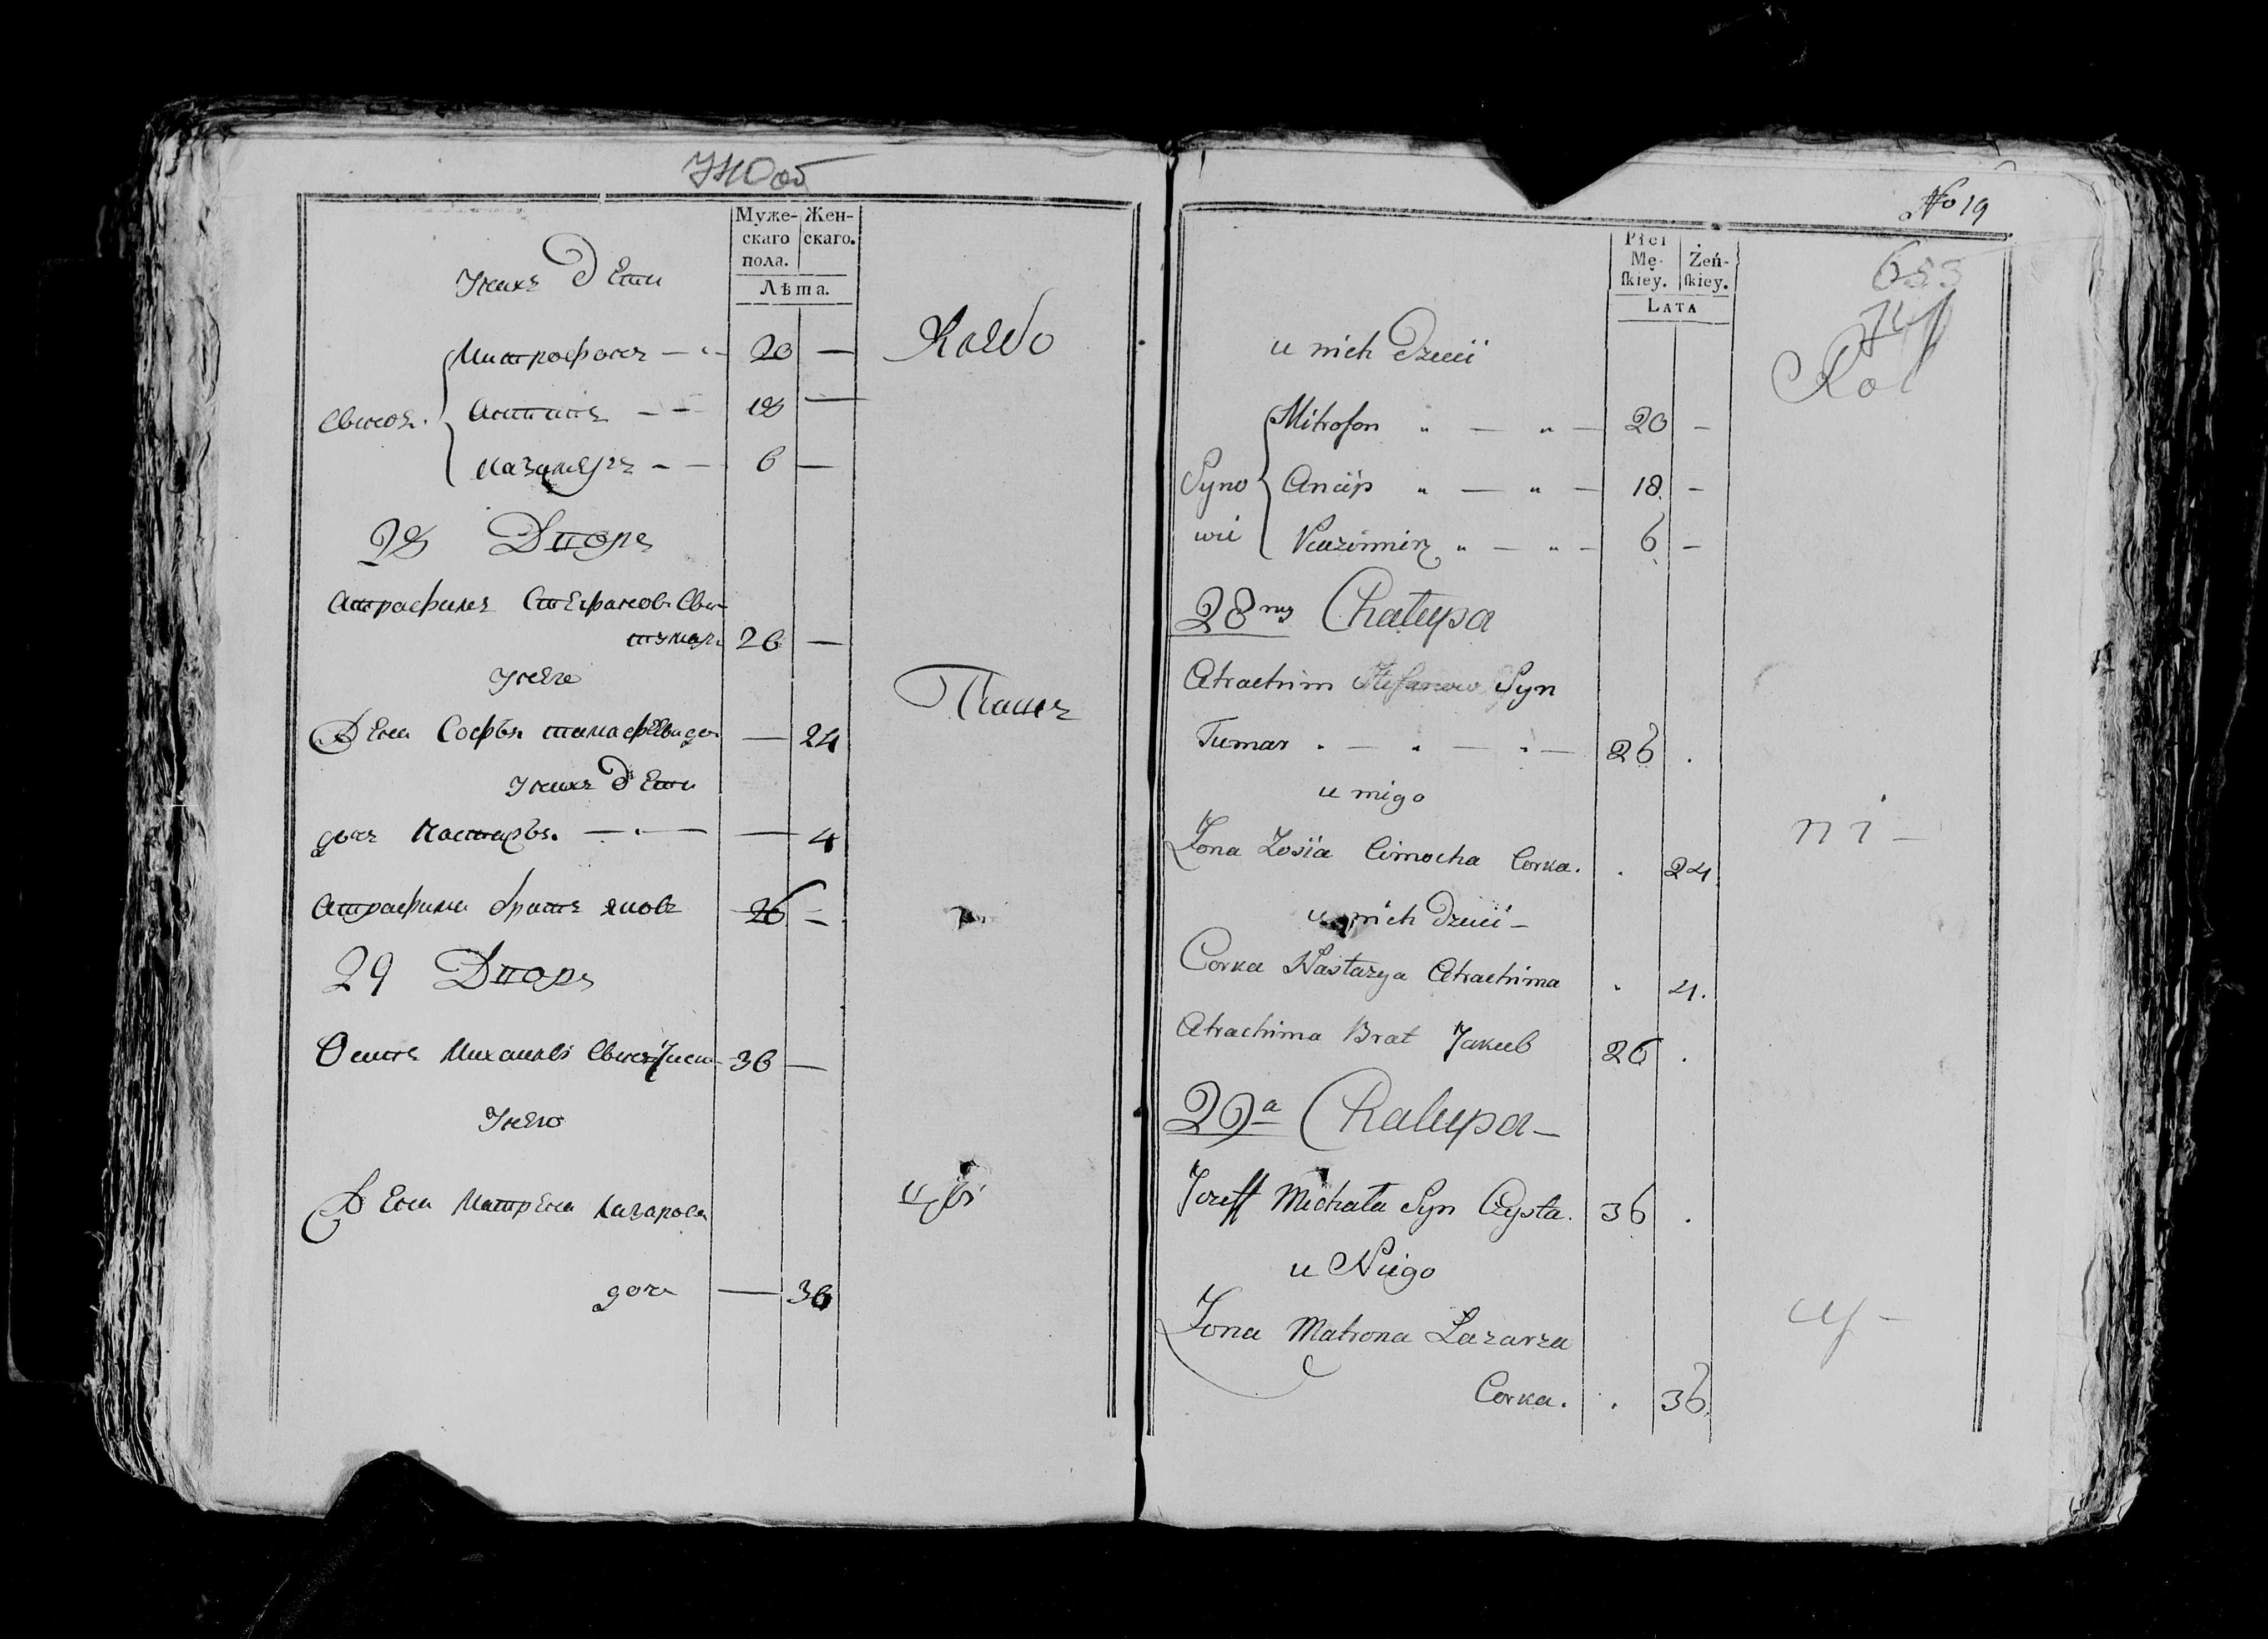 Муже- Жен-
скаго скаго.
пола.
Лѣта.
У нихъ дети
Митрофонъ — 20 —
Сыновя. Антипъ — 18 —
Казимеръ — 6 —
28 Дворъ
Атрафимъ Стефановъ Сынъ
тумаръ 26 —
У него
Жена Софья тимафеева доч — 24
У нихъ дети
дочъ Настарья. — 4
Атрафима братъ яковъ 26 —
29 Дворъ
Осипъ Михаиловъ Сынъ 36 —
У него
Жена Матрена Лазарова
доч — 36
No 19
Płci
Mę- Żeń-
skiey. skiey.
LATA
u nich Dzieci
Mitrofon " — " — 20 —
Syno Ancip " — " — 18 —
wie Kazimirz " — " — 6 —
28 Chałupa
Atrachim Stefanow Syn
Tumar . — . — . — 26 .
u niego
Żona Zosia Cimocha Corka. . 24
u nich Dzieci —
Corka Nastazya Atrachima . 4.
Atrachima Brat Jakub 26 .
29a Chałupa —
Jozeff Michała Syn Czysta. 36 .
u Niego
Żona Matrona Łazarza
Corka. . 36